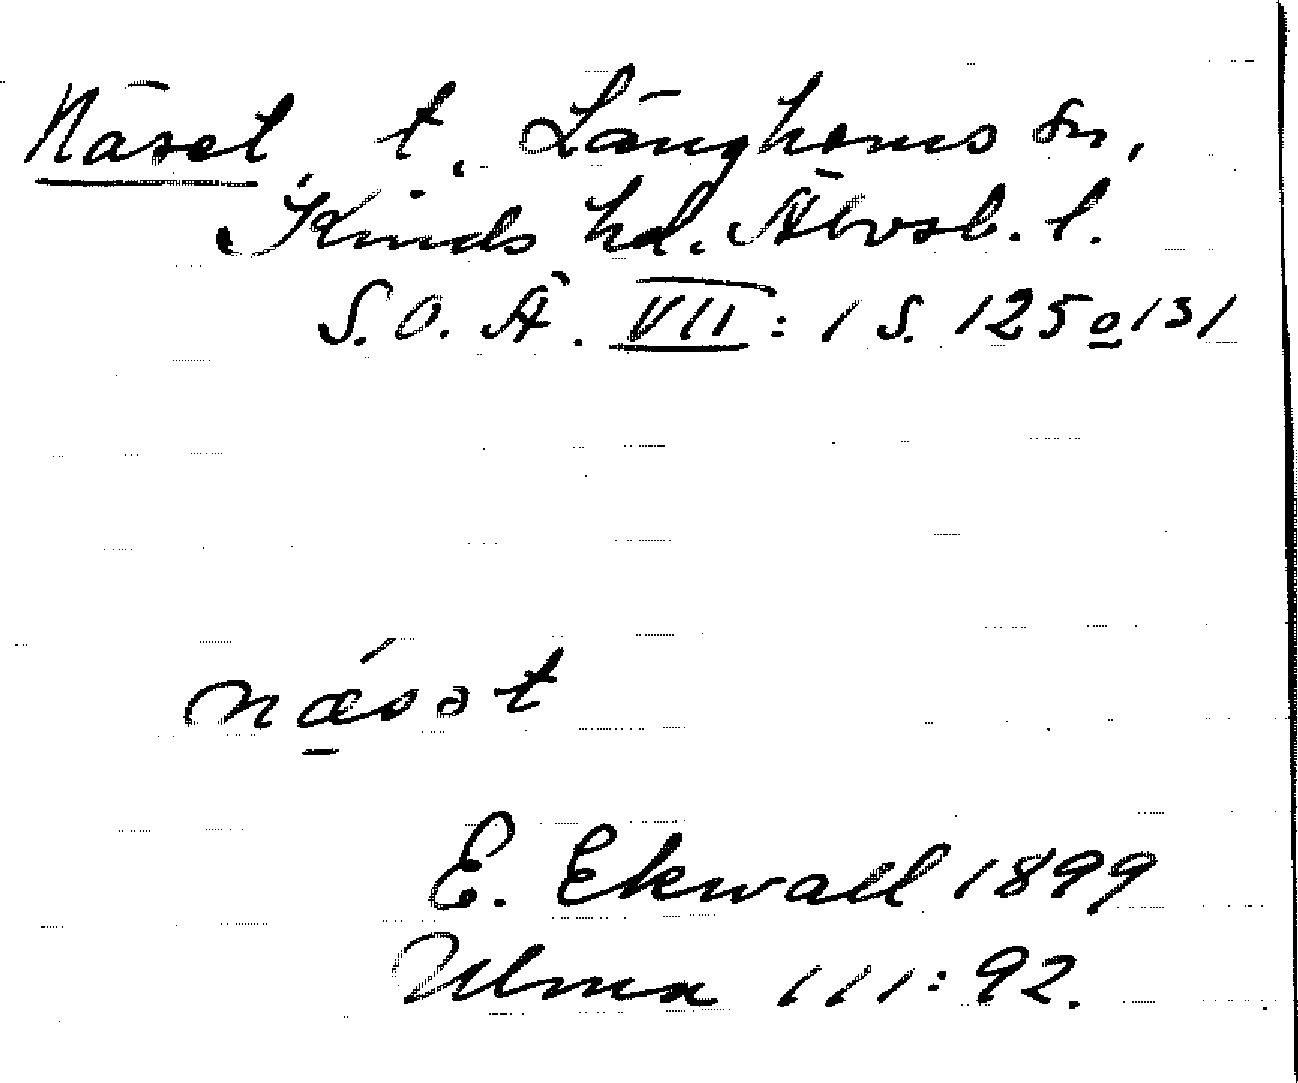 Näset, t., Länghems sn,
Kinds hd. Älvsb. l.
S.O.Ä. VII: 1 S. 125 o 131
nǽ̱sət
E. Ekwall 1899
Ulma 111:92.